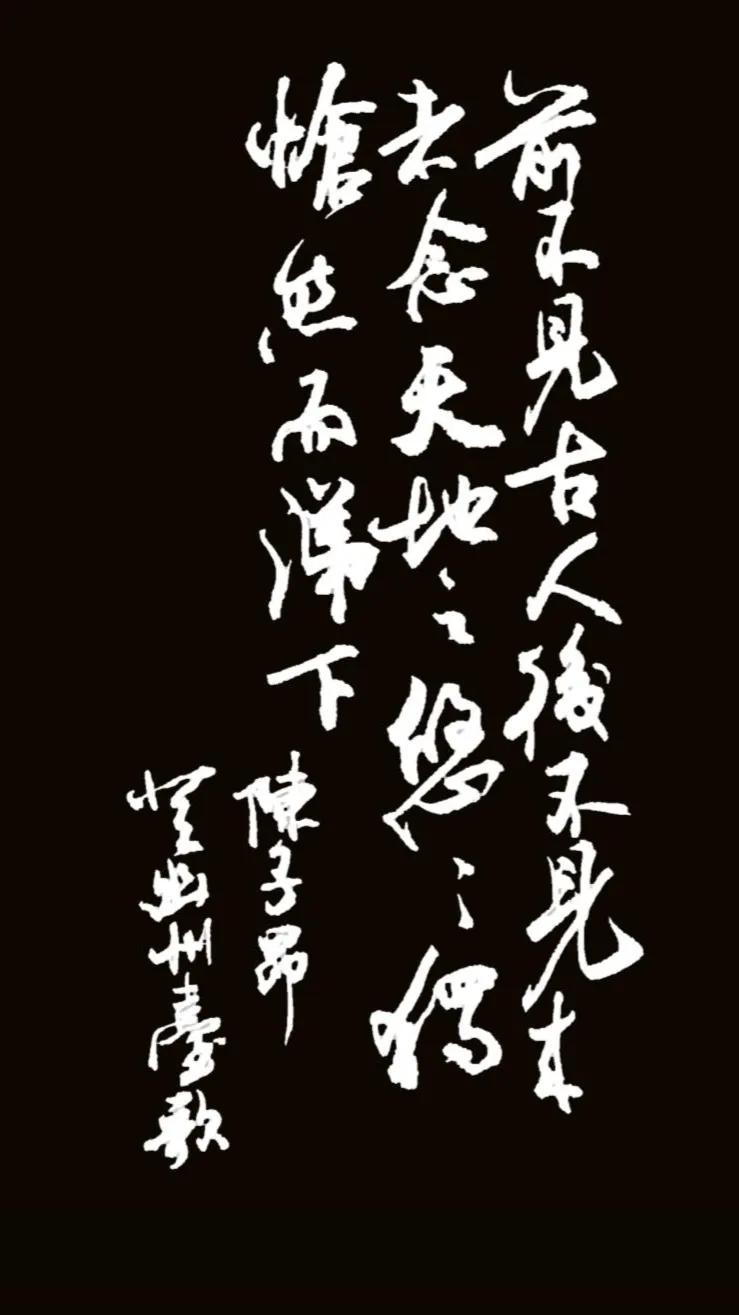 前不見古人後不見來
者念天地之悠々獨
愴然而涕下
陳子昂
登幽州臺歌